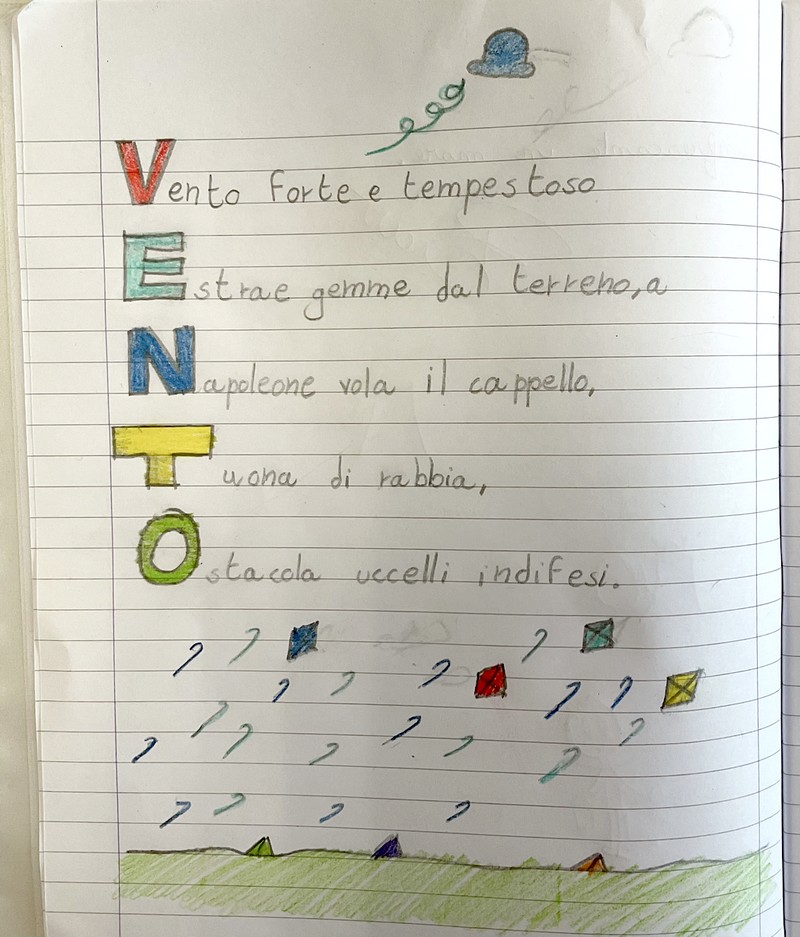 Vento forte e tempestoso
Estrae gemme dal terreno, a
Napoleone vola il cappello,
Tuona di rabbia,
Ostacola uccelli indifesi.